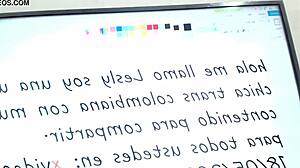 EOS.COM
hola me llamo Lesly soy una
chica trans colombiana con
contenido para compartir:
para todos ustedes en: